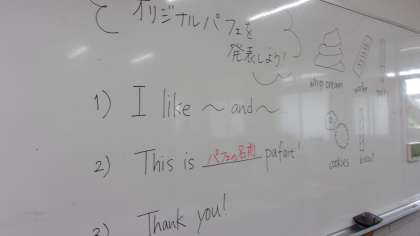 オリジナルパフェを
発表しよう!
whip cream
1) I like ～ and ～
2) This is パフェの名前 pafait!
cookies
3) Thank you!